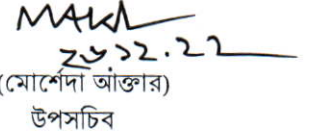 ২৬.১২.২২
(মোর্শেদা আক্তার)
উপসচিব